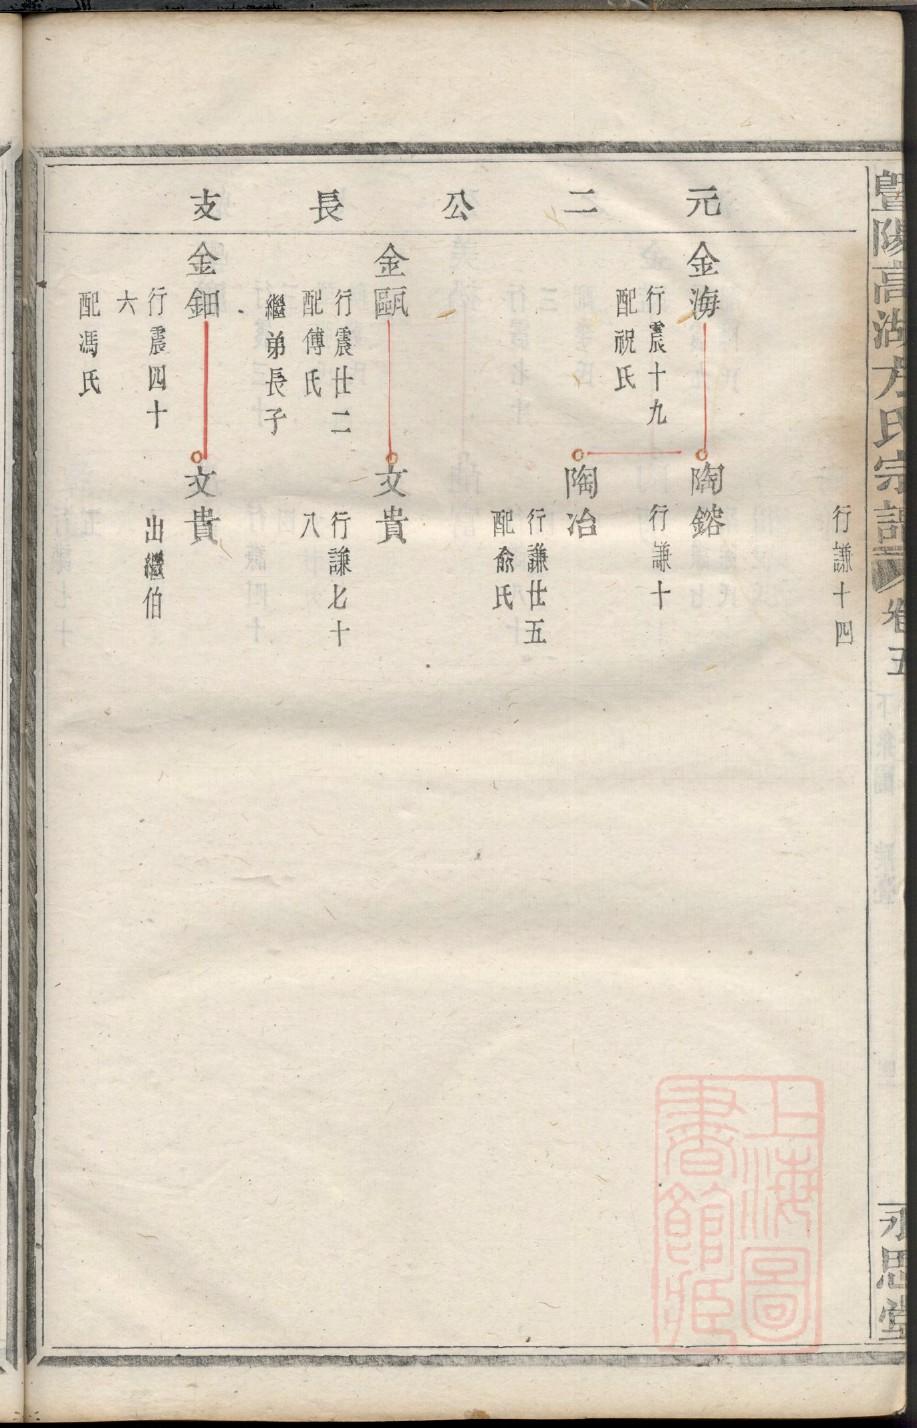 暨陽高湖方氏宗譜
卷五
永思堂
元二公長支
行謙十四
金海
行震十九
配祝氏
陶鎔
行謙十
陶冶
行謙廿五
配俞氏
金甌
行震廿二
配傅氏
繼弟長子
文貴
行謙七十
八
金鈿
行震四十
六
配馮氏
文貴
出繼伯
上海圖
書館藏